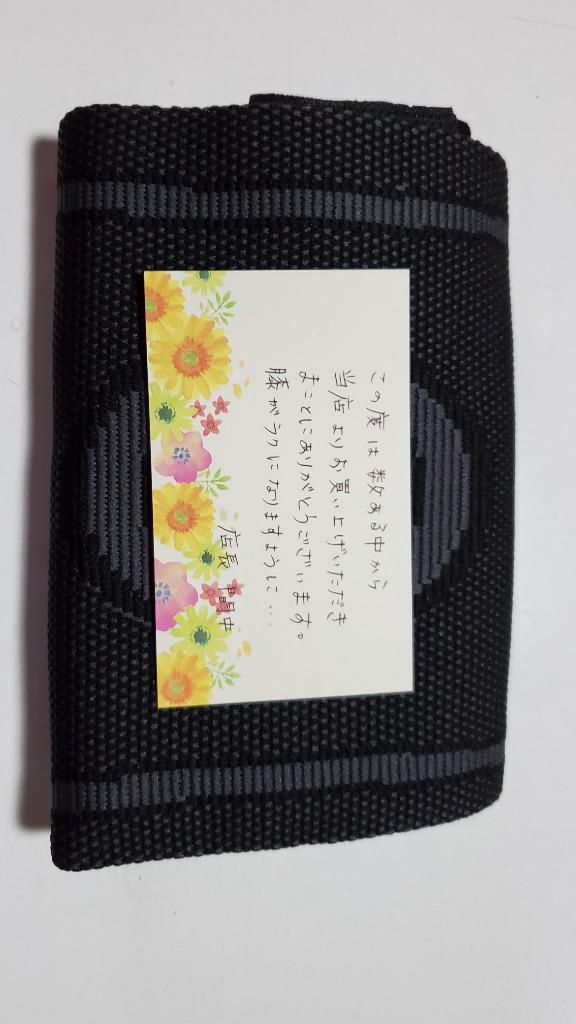 この度は数ある中から
当店よりお買い上げいただき
まことにありがとうございます。
膝がラクになりますように...
店長 間中